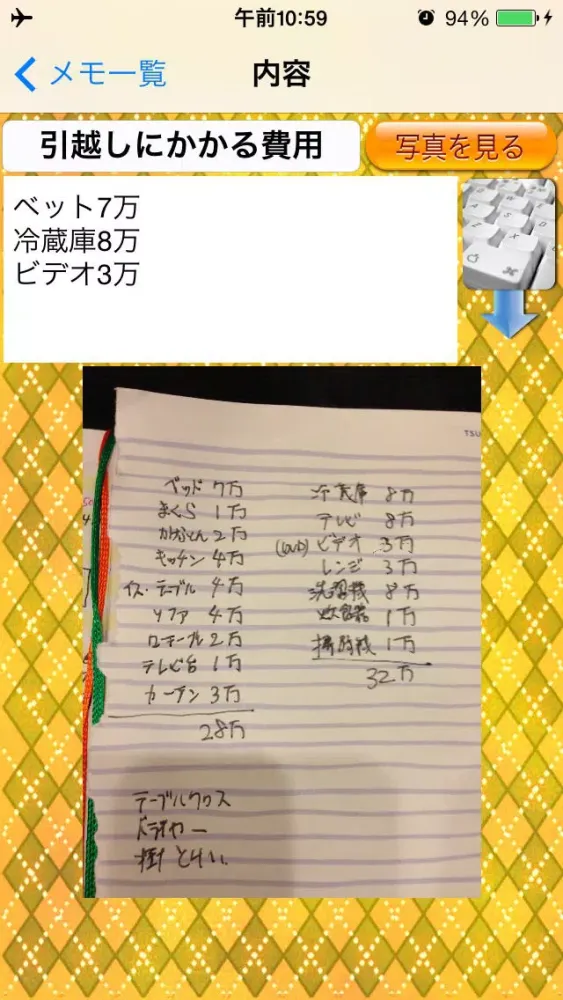 午前10:59
94%
メモ一覧
内容
引越しにかかる費用
写真を見る
ベット7万
冷蔵庫8万
ビデオ3万
TSU
ベッド 7万
まくら 1万
かけぶとん 2万
キッチン 4万
イス・テーブル 4万
ソファ 4万
ロテーブル 2万
テレビ台 1万
カーテン 3万
28万
冷蔵庫 8万
テレビ 8万
ビデオ 3万
レンジ 3万
洗濯機 8万
炊飯器 1万
掃除機 1万
32万
テーブルクロス
ドライヤー